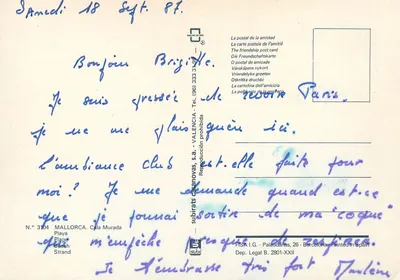 Samedi 18 Sept. 87.
Bonjour Brigitte.
Je suis pressée de revoir Paris.
je ne me plais guère ici.
L'ambiance club est-elle faite pour
moi ? Je me demande quand est-ce
que je pourrai sortir de ma "coque"
qui m'empêche presque de respirer
Je t'embrasse très fort
La postal de la amistad
La carte postale de l'amitié
The friendship post card
Die Freundschaftskarte
O postal de amizade
Vänskapens vykort
Vriendelijke groeten
La cartolina dell'amicizia
subirats casanovas, s.a. - VALENCIA - Tel. (96) 333
Reproducción prohibida
N.º 3104 MALLORCA. Cala Murada
Playa
Strand
Dep. Legal B. 2901-XXII